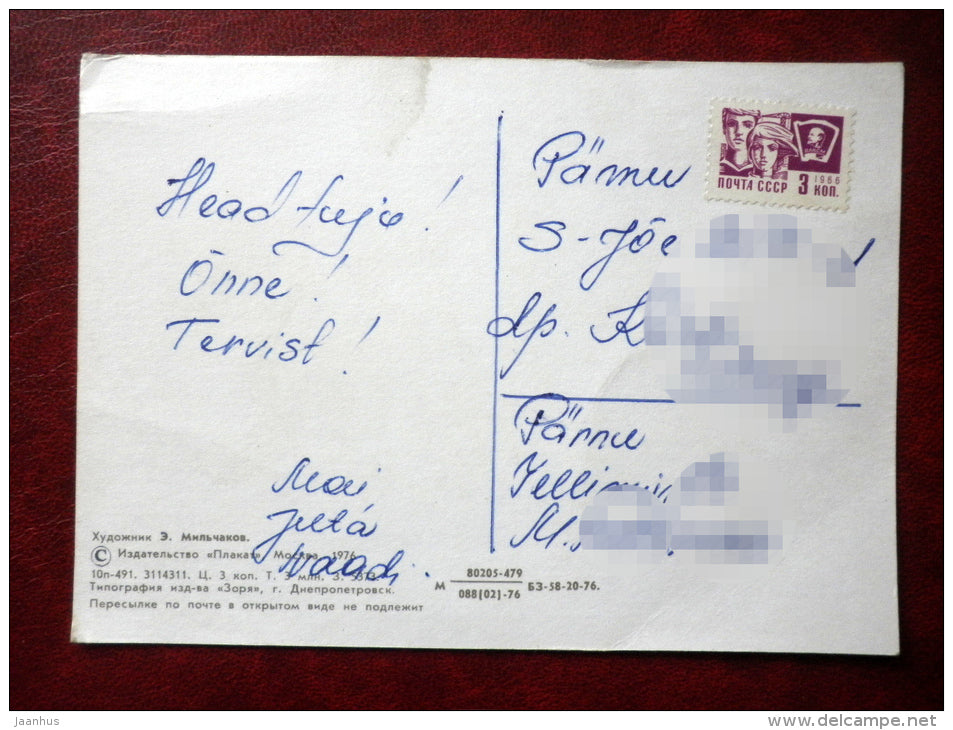 Head tuju!
Õnne!
Tervist!
Mai
Juta
Пärnu
S-Jõe
dp. K
Pärnu
M.
ПОЧТА СССР 3 КОП.
1966
Художник Э. Мильчаков.
© Издательство «Плакат», Москва, 1976
10п-491. 3114311. Ц. 3 коп. Т. 3 млн. З.
Типография изд-ва «Зоря», г. Днепропетровск.
Пересылке по почте в открытом виде не подлежит
М 80205-479
088(02)-76 БЗ-58-20-76.
Jaanhus
www.delcampe.net